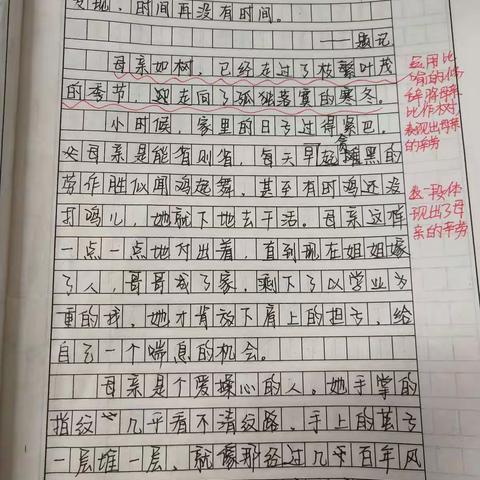 发现，时间再没有时间。
——题记
母亲如树，已经走过了枝繁叶茂
的季节，迎走向了孤独落寞的寒冬。
小时候，家里的日子过得紧巴。
父母亲是能省则省，每天早起贪黑的
劳作胜似闻鸡起舞，甚至有时鸡还没
打鸣儿，她就下地去干活。母亲这样
一点一点地付出着，直到现在姐姐嫁
了人，哥哥成了家，剩下了以学业为
重的我，她才肯放下肩上的担子，给
自己一个喘息的机会。
母亲是个爱操心的人。她手掌的
指纹几乎看不清纹路，手上的茧子
一层堆一层，就像那经过几千百年风
运用比
喻的修
辞将母亲
比作树
表现出母亲
的辛劳
这一段体
现出了母
亲的辛劳